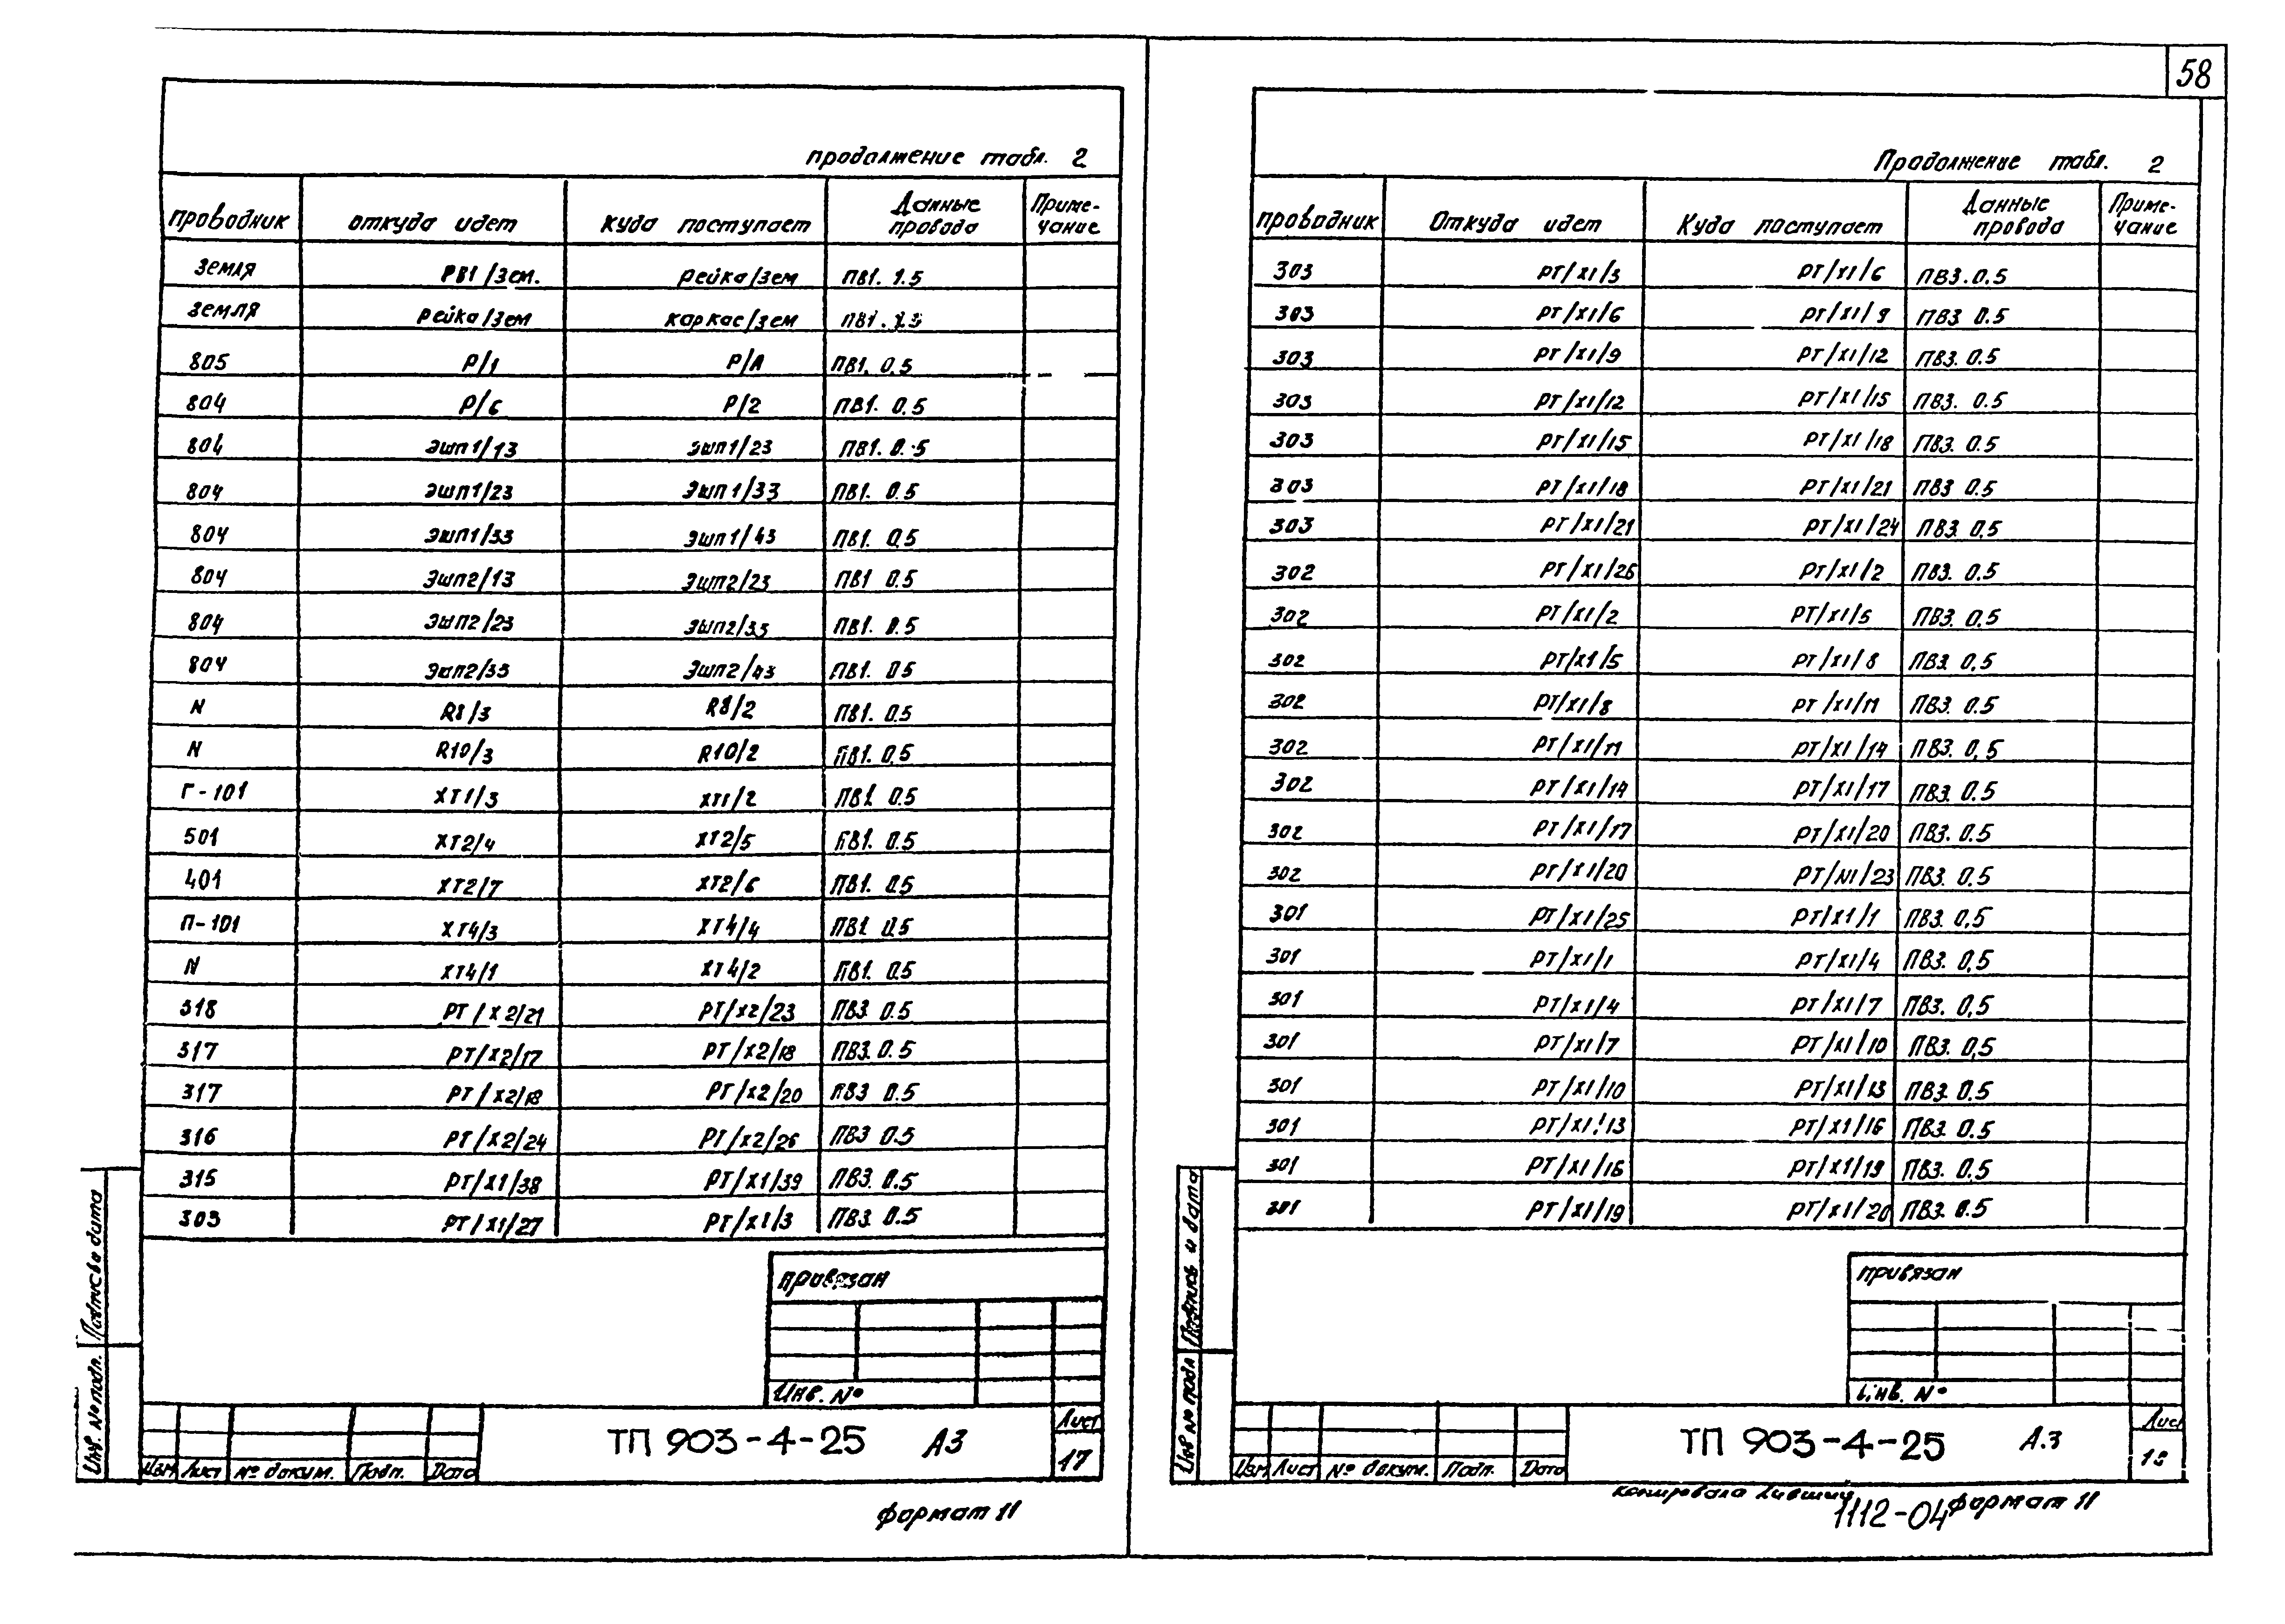 58
продолжение табл. 2
проводник откуда идет куда поступает Данные провода Приме-чание
земля РВ1/Зем. рейка/Зем ПВ1. 1.5
земля рейка/Зем каркас/зем ПВ1.
805 Р/1 Р/А ПВ1. 0.5
804 Р/6 Р/2 ПВ1. 0.5
804 ЭШП1/13 ЭШП1/23 ПВ1. 0.5
804 ЭШП1/23 ЭШП1/33 ПВ1. 0.5
804 ЭШП1/33 ЭШП1/43 ПВ1. 0.5
804 ЭШП2/13 ЭШП2/23 ПВ1 0.5
804 ЭШП2/23 ЭШП2/33 ПВ1. 0.5
804 ЭШП2/33 ЭШП2/43 ПВ1. 0.5
N R8/3 R8/2 ПВ1. 0.5
N R10/3 R10/2 ПВ1. 0.5
Г-101 ХТ1/3 ХТ1/2 ПВ1. 0.5
501 ХТ2/4 ХТ2/5 ПВ1. 0.5
401 ХТ2/7 ХТ2/6 ПВ1. 0.5
П-101 ХТ4/3 ХТ4/4 ПВ1. 0.5
N ХТ4/1 ХТ4/2 ПВ1. 0.5
318 РТ/Х2/21 РТ/Х2/23 ПВ3. 0.5
317 РТ/Х2/17 РТ/Х2/18 ПВ3. 0.5
317 РТ/Х2/18 РТ/Х2/20 ПВ3 0.5
316 РТ/Х2/24 РТ/Х2/26 ПВ3 0.5
315 РТ/Х1/38 РТ/Х1/39 ПВ3. 0.5
303 РТ/Х1/27 РТ/Х1/3 ПВ3. 0.5
привязан
Инв. №
ТП 903-4-25 А3
Лист
17
Изм Лист № докум. Подп. Дата
Инв. № подл. Подпись и дата
Формат 11
Продолжение табл. 2
проводник Откуда идет Куда поступает Данные провода Приме-чание
303 РТ/Х1/3 РТ/Х1/6 ПВ3. 0.5
303 РТ/Х1/6 РТ/Х1/9 ПВ3 0.5
303 РТ/Х1/9 РТ/Х1/12 ПВ3. 0.5
303 РТ/Х1/12 РТ/Х1/15 ПВ3. 0.5
303 РТ/Х1/15 РТ/Х1/18 ПВ3. 0.5
303 РТ/Х1/18 РТ/Х1/21 ПВ3 0.5
303 РТ/Х1/21 РТ/Х1/24 ПВ3. 0.5
302 РТ/Х1/26 РТ/Х1/2 ПВ3. 0.5
302 РТ/Х1/2 РТ/Х1/5 ПВ3. 0.5
302 РТ/Х1/5 РТ/Х1/8 ПВ3. 0.5
302 РТ/Х1/8 РТ/Х1/11 ПВ3. 0.5
302 РТ/Х1/11 РТ/Х1/14 ПВ3. 0,5
302 РТ/Х1/14 РТ/Х1/17 ПВ3. 0.5
302 РТ/Х1/17 РТ/Х1/20 ПВ3. 0.5
302 РТ/Х1/20 РТ/Х1/23 ПВ3. 0.5
301 РТ/Х1/25 РТ/Х1/1 ПВ3. 0,5
301 РТ/Х1/1 РТ/Х1/4 ПВ3. 0,5
301 РТ/Х1/4 РТ/Х1/7 ПВ3. 0,5
301 РТ/Х1/7 РТ/Х1/10 ПВ3. 0,5
301 РТ/Х1/10 РТ/Х1/13 ПВ3. 0.5
301 РТ/Х1/13 РТ/Х1/16 ПВ3. 0.5
301 РТ/Х1/16 РТ/Х1/19 ПВ3. 0.5
301 РТ/Х1/19 РТ/Х1/20 ПВ3. 0.5
привязан
Инв. №
ТП 903-4-25 А.3
Лист
18
Изм Лист № докум. Подп. Дата
Инв № подл Подпись и дата
копировала
1112-04 Формат 11